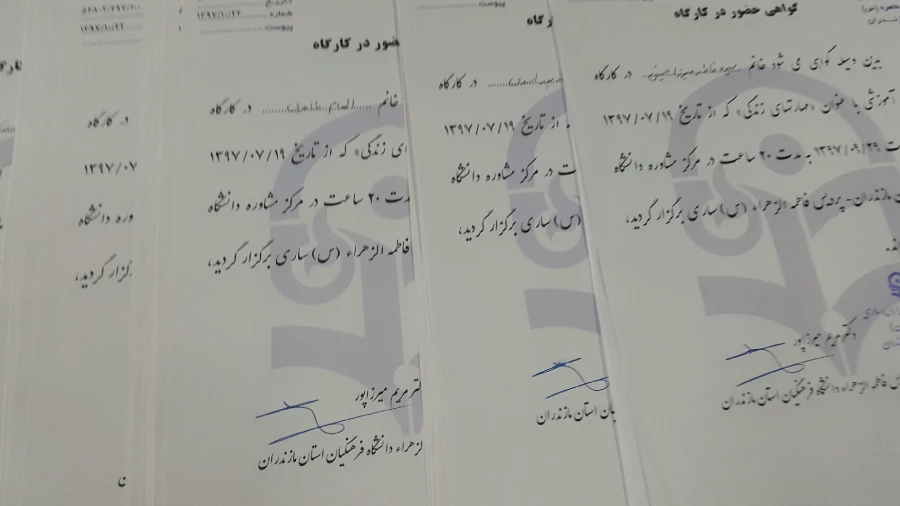 گواهی حضور در کارگاه
بدین وسیله گواهی می شود خانم سیده فاطمه میرزا حسینی در کارگاه
آموزشی با عنوان «مهارتهای زندگی» که از تاریخ ۱۳۹۷/۰۷/۱۹
۱۳۹۷/۰۹/۲۹ به مدت ۲۰ ساعت در مرکز مشاوره دانشگاه
مازندران- پردیس فاطمه الزهراء (س) ساری برگزار گردید،
دکتر مریم میرزاپور
فاطمه الزهراء دانشگاه فرهنگیان استان مازندران
پیوست
در کارگاه
از تاریخ ۱۳۹۷/۰۷/۱۹
ت در مرکز مشاوره دانشگاه
(س) ساری برگزار گردید،
استان مازندران
شماره ۱۳۹۷/۱۰/۲۲
پیوست
حضور در کارگاه
خانم در کارگاه
ای زندگی» که از تاریخ ۱۳۹۷/۰۷/۱۹
مدت ۲۰ ساعت در مرکز مشاوره دانشگاه
فاطمه الزهراء (س) ساری برگزار گردید،
دکتر مریم میرزاپور
الزهراء دانشگاه فرهنگیان استان مازندران
۱۳۹۷/۱۰/۲۲
در کارگاه
۱۳۹۷/۰۷
وره دانشگاه
برگزار گردید،